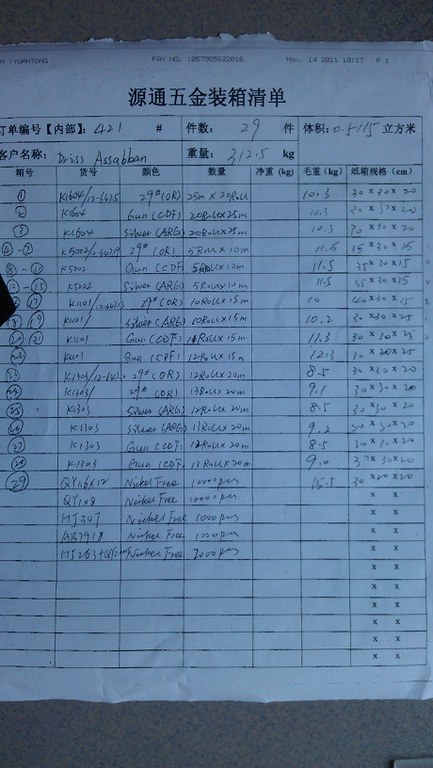 M (YUANTONG FAX NO. :057985622015 Nov. 14 2011 10:17 P 1
源通五金装箱清单
订单编号【内部】: 421 # 件数: 29 件 体积: 立方米
客户名称: Driss Assabban 重量: 312.5 kg
箱号 货号 颜色 数量 净重 (kg) 毛重 (kg) 纸箱规格 (cm)
① K1604/ 29# (OR) 25m x 20Roll 10.3 30 x 30 x 20
② K1604 Gun (CDF) 20Roll x 25m 10.3
③ K1604 Silver (ARG) 20Roll x 25m 10.3 30 x 30 x 20
K5002/ 29# (OR) 5Roll x 10m 11.5 35 x 30 x 15
K5002 Gun (CDF) 5Roll x 10m 11.5 35 x 30 x 15
K5002 Silver (ARG) 5Roll x 10m 11.5 35 x 30 x 15
K1101 29# (OR) 10Roll x 15m 10 40 x 30 x 15
K1101 Silver (ARG) 10Roll x 15m 10.2 30 x 30 x 25
K1101 Gun (CDF) Roll x 15m 11.3 30 x 30 x 25
K1101 Gun (CDF) 12Roll x 15m 12.3 30 x x 25
K1303/ 29# (OR) 12Roll x 20m 8.5 30 x 30 x 20
K1303/ 29# (OR) 13Roll x 20m 9.1 30 x 30 x 20
K1303 Silver (ARG) 12Roll x 20m 8.5 30 x 30 x 20
K1303 Silver (ARG) 13Roll x 20m 9.2 30 x 30 x 20
K1303 Gun (CDF) 12Roll x 20m 8.5 30 x 30 x 20
K1303 Gun (CDF) 13Roll x 20m 9.0 30 x 20
㉙ Nickel Free 1000pcs 15.5 30 x x 20
Nickel Free 1000pcs
HJ347 Nickel Free 1000pcs x x
AB7918 Nickel Free 1000pcs x x
Nickel Free 2000pcs x x
x x
x x
x x
x x
x x
x x